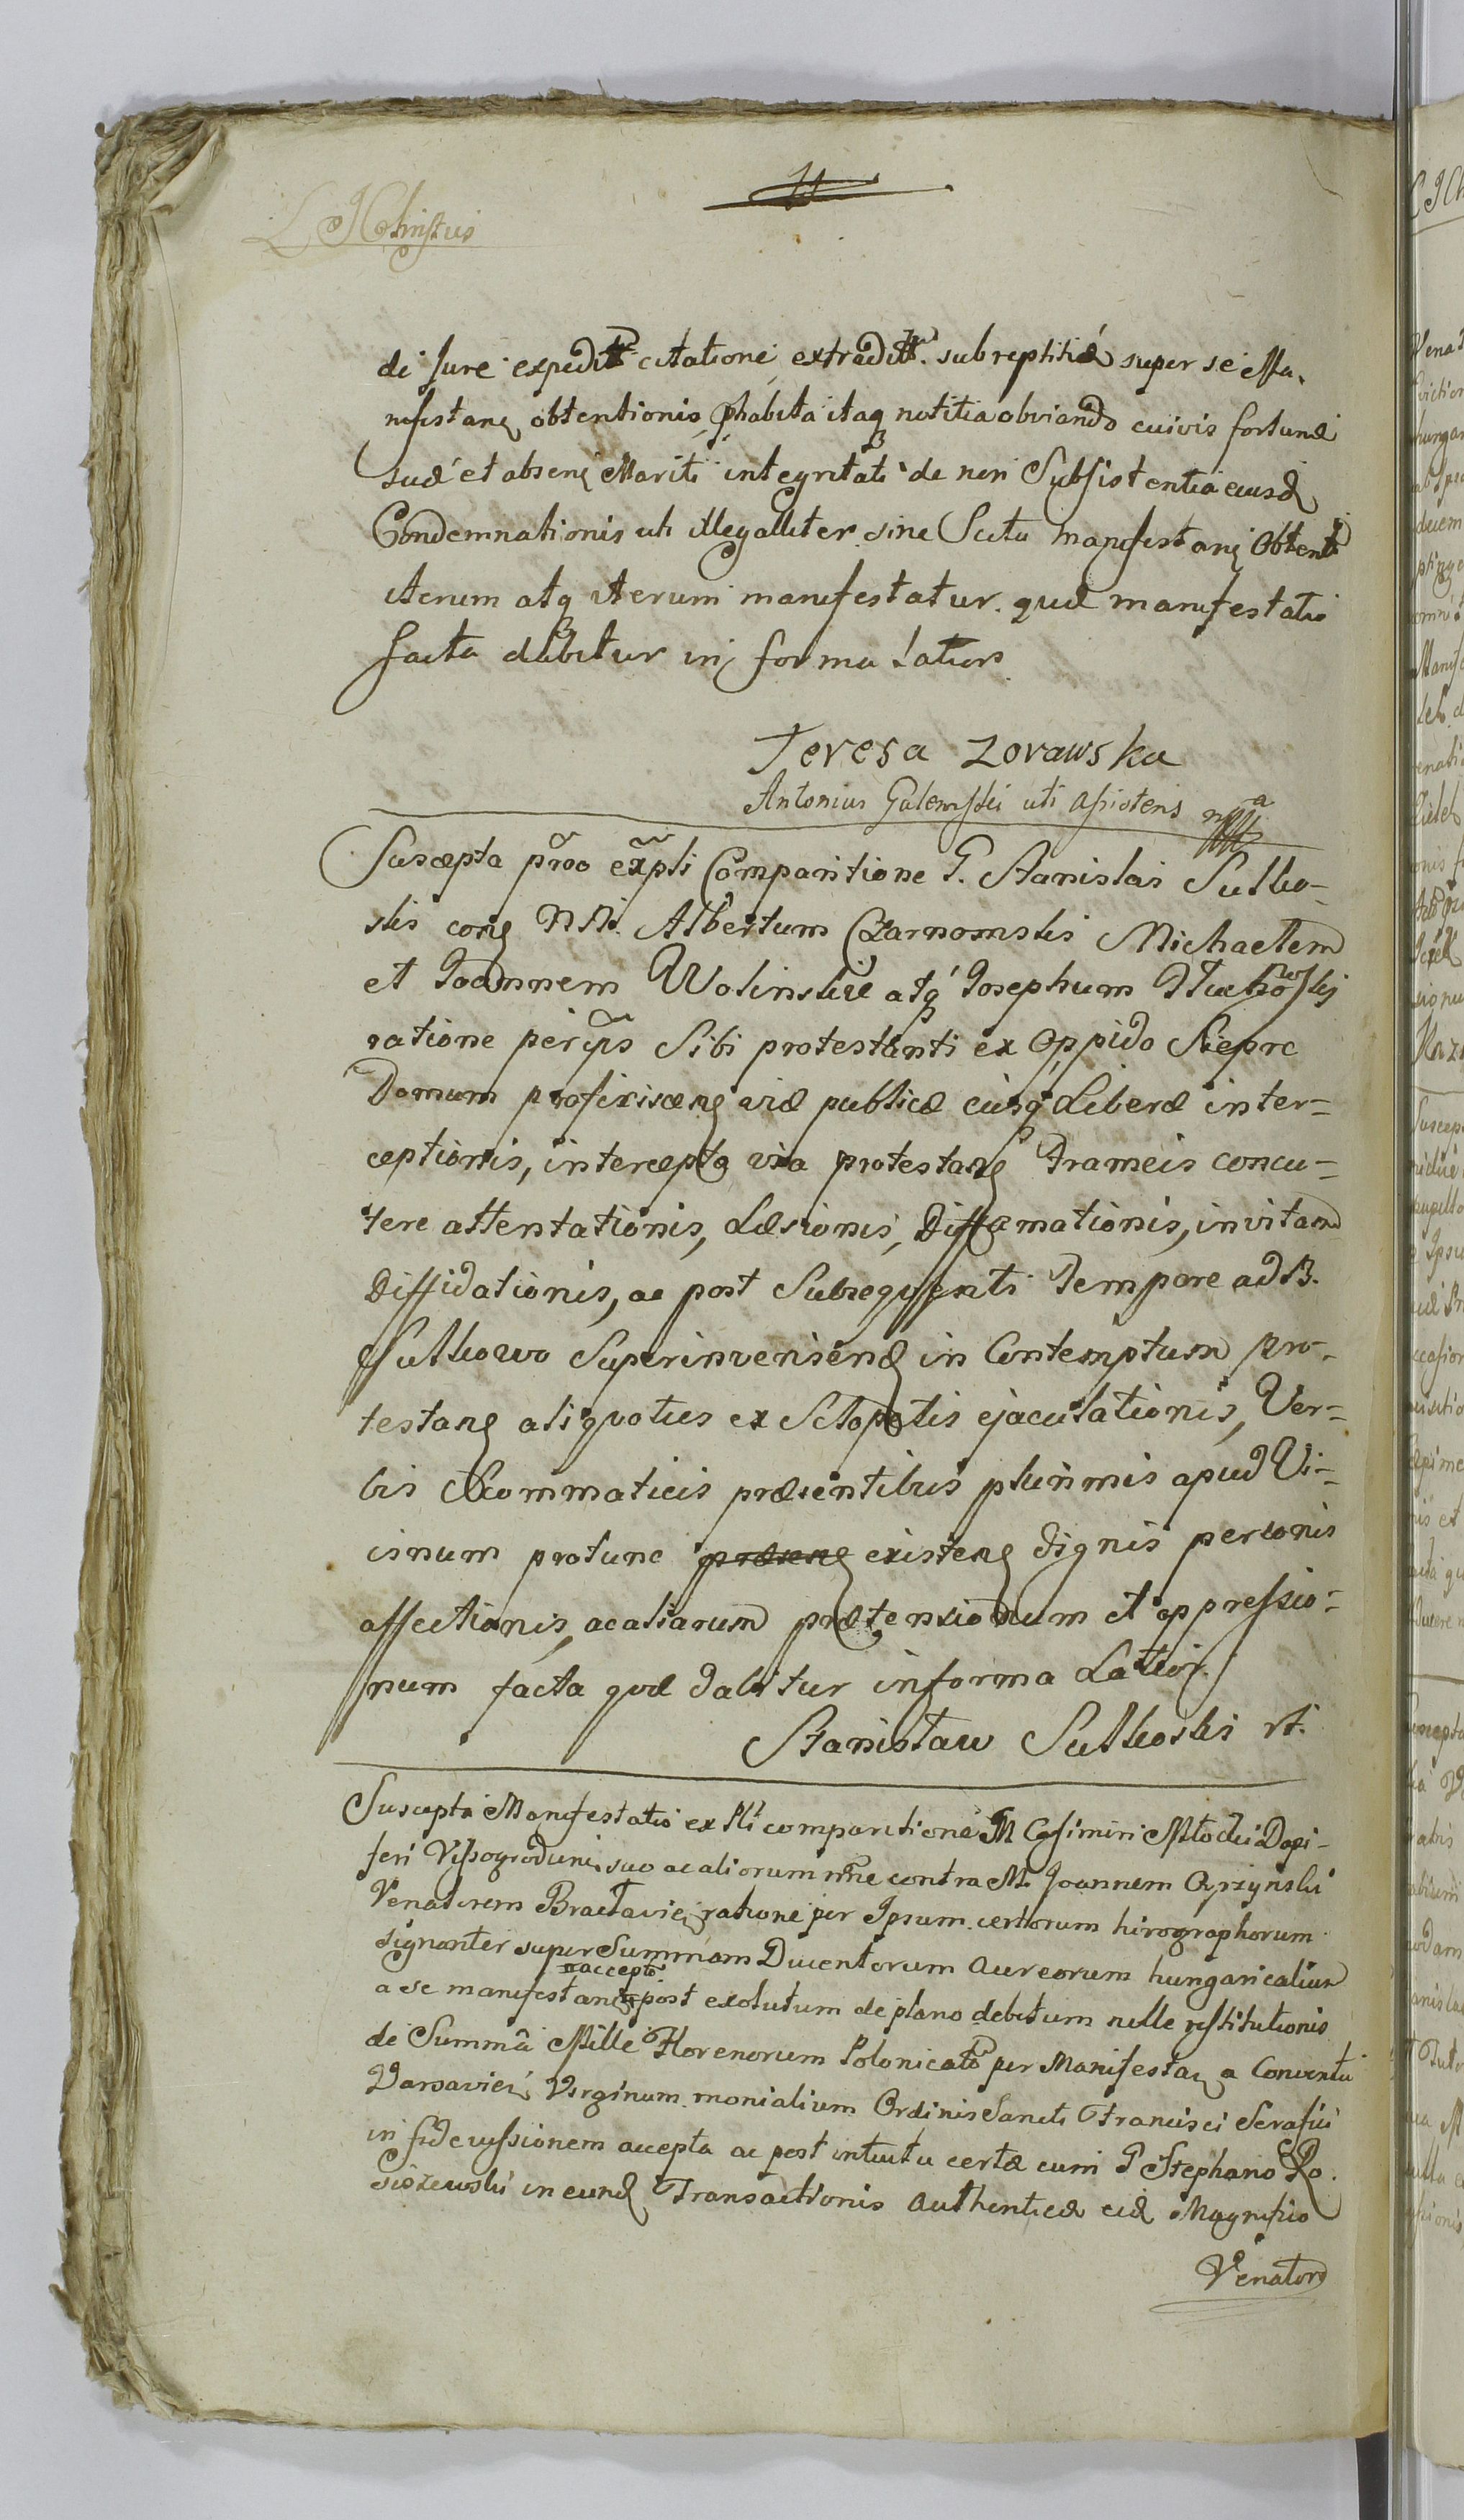 de Jure expedit citatione extradit. subreptitiæ super se Ma-
nifestanq obtentionis, phabita itaq notitia obviando cuivis fortunæ
suæ et absenq Mariti integritati de non Subsistentia eiusd
Condemnationis uti illegalliter sine Scitu manifestanq Obtent
iterum atq iterum manifestatur. quæ manifestatio
facta dabitur in forma Latiors

Teresa Zorawska
Antonius Golemski uti assistens mpp

Suscepta prōo exp̄li Comparitione G. Stanislai Sutko-
ski conq NN. Albertum Czarnomskis Michaelem
et Joannem Wolinskie atq Josephum
ratione per ip̄s Sibi protestanti ex Oppido Sierpc
Domum proficiscenq viæ publicæ eiusq Liberæ inter-
ceptionis, intercepta via protestanq Frameis concu-
tere attentationis, Læsionis, Diffamationis, in vitam
Diffidationis, ac post Subsequenti Tempore ad B.
Sutkowo Superinveniend in Contemptum pro-
testanq aliquoties ex Sclopetis ejaculationis, Ver-
bis Scommaticis præsentibus plurimis apud Vi-
cinum protunc existenq dignis personis
affectionis, ac aliarum prætensionum et oppressio-
num facta quæ dabitur in forma Latior.
Stanisław Sutkoski

Suscepta Manifestatio ex Pli comparitione M Casimiri Młocki Dapi-
feri Vyssogrodunq suo ac aliorum nn̄e contra M. Joannem Ciprzynski
Venatorem Braclavienq ratione per Ipsum certorum hirographorum
signanter super Summam Ducentorum Aureorum hungaricalium
accepto
a se manifestanq post exolutum de plano debitum nulle restitutionis
de Summâ Mille Florenorum Polonicaln per Manifestanq a Conventu
Varsavienq Virginum monialium Ordinis Sancti Francisci Serafici
in fidecussionem accepta ac post intuitu certæ cum G Stephano Ro-
ciszewski in eund Transactionis authenticæ eid Magnifico
Venatori